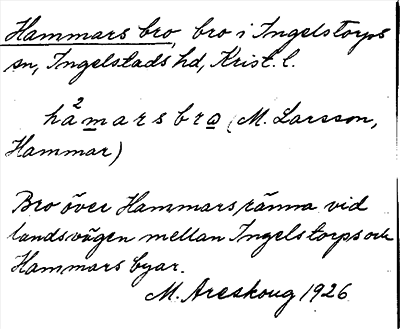 Hammars bro, bro i Ingelstorps
sn, Ingelstads hd, Krist. l.
hå²marsbro (M. Larsson,
Hammar)
Bro över Hammars ränna vid
landsvägen mellan Ingelstorps och
Hammars byar.
M. Areskoug 1926